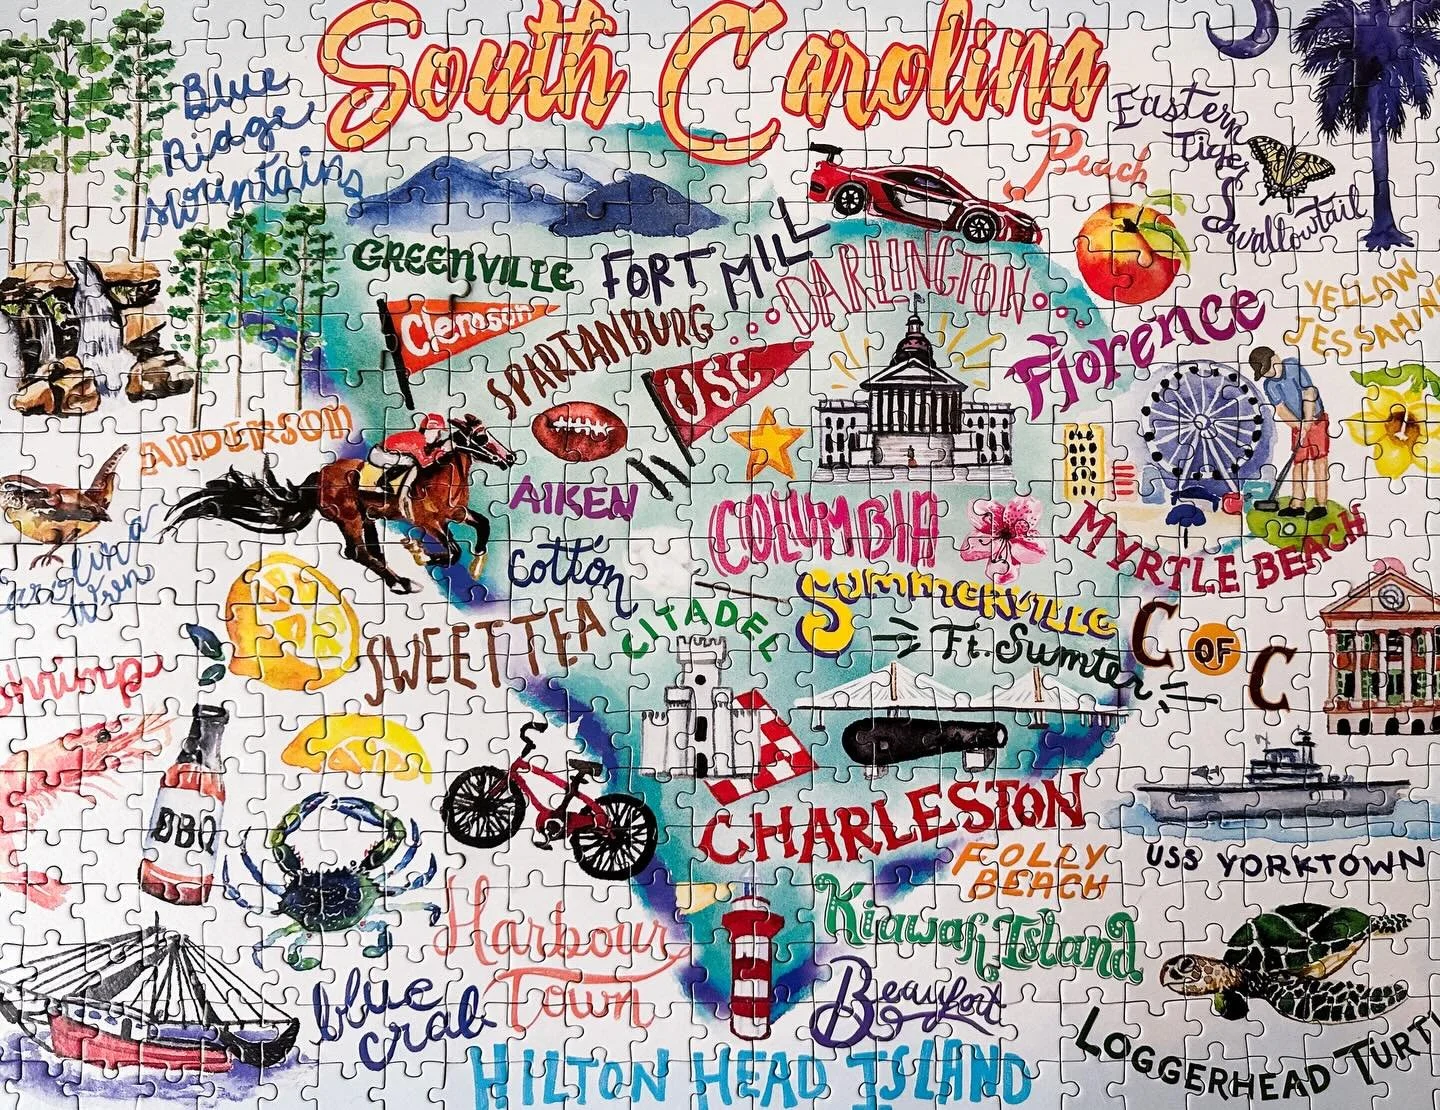 South Carolina
Blue
Ridge
Mountains
Eastern
Tiger
Swallowtail
Peach
GREENVILLE
FORT MILL
DARLINGTON
Clemson
SPARTANBURG
USC
Florence
YELLOW
JESSAMIN
ANDERSON
AIKEN
COLUMBIA
MYRTLE BEACH
Carolina
Wren
Cotton
SWEET TEA
CITADEL
SUMMERVILLE
Ft. Sumter
C OF C
Shrimp
BBQ
CHARLESTON
FOLLY
BEACH
USS YORKTOWN
Harbour
Town
Kiawah Island
Beaufort
blue
crab
HILTON HEAD ISLAND
LOGGERHEAD TURT